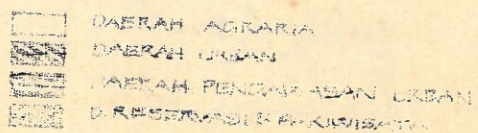 DAERAH AGRARIA
DAERAH URBAN
DAERAH PENGAWASAN URBAN
D. RESERVASI & PARIWISATA